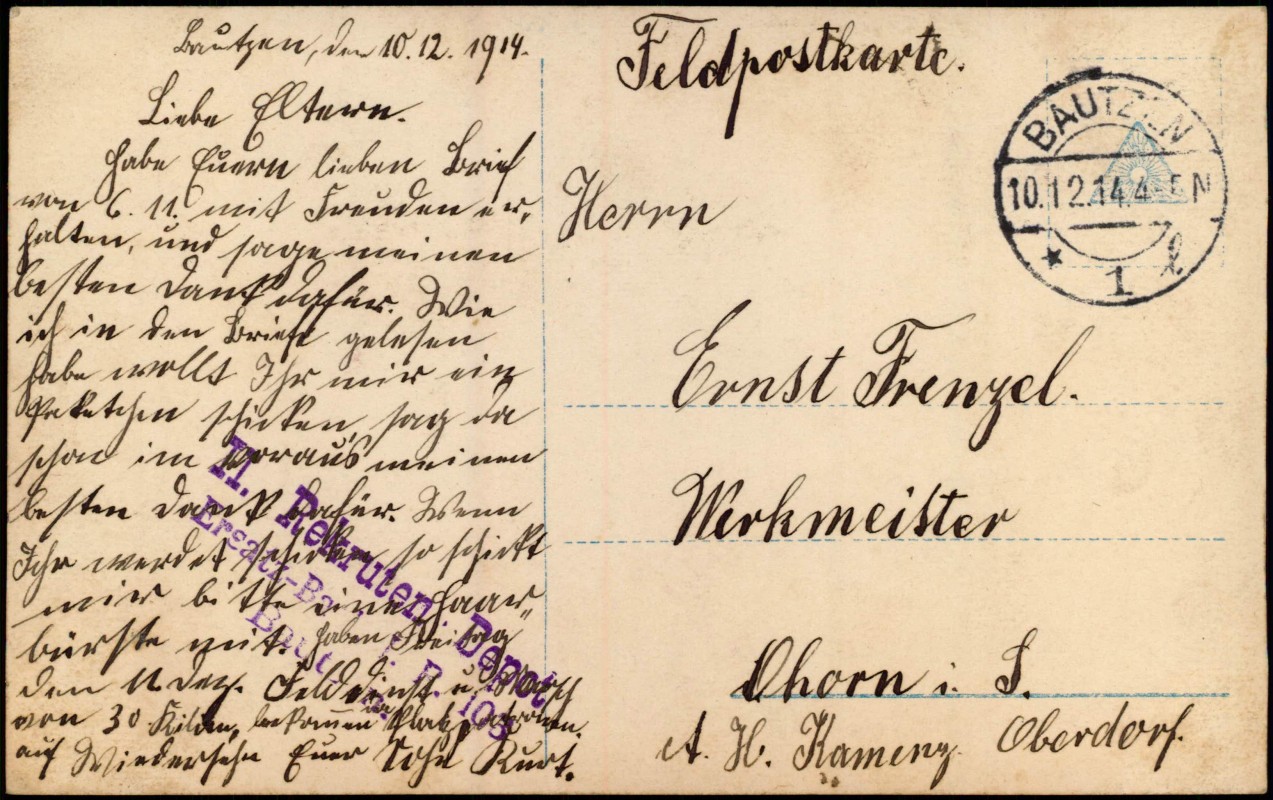 Bautzen, den 10.12.1914.
Liebe Eltern.
Habe Euern lieben Brief
von 6. 11. mit Freuden er-
halten, und sage meinen
besten Dank dafür. Wie
ich in den Briefe gelesen
habe wollt Ihr mir ein
Paketchen schicken, sag da
schon im voraus meinen
besten Dank dafür. Wenn
Ihr werdet schicken, so schickt
mir bitte eine Haar-
bürste mit. Haben Freitag
den 11. Dez. Felddienst u. Marsch
von 30 Kilom, bekommen da Platzpatronen.
auf Wiedersehn Euer Sohn Kurt.
II. Rekruten-Depot
Ersatz-Bat. I. R. 103
Bautzen
Feldpostkarte.
BAUTZEN
10.12.14.4-5N
* 1 l
Herrn
Ernst Frenzel.
Werkmeister
Ohorn i. S.
A. H. Kamenz. Oberdorf.